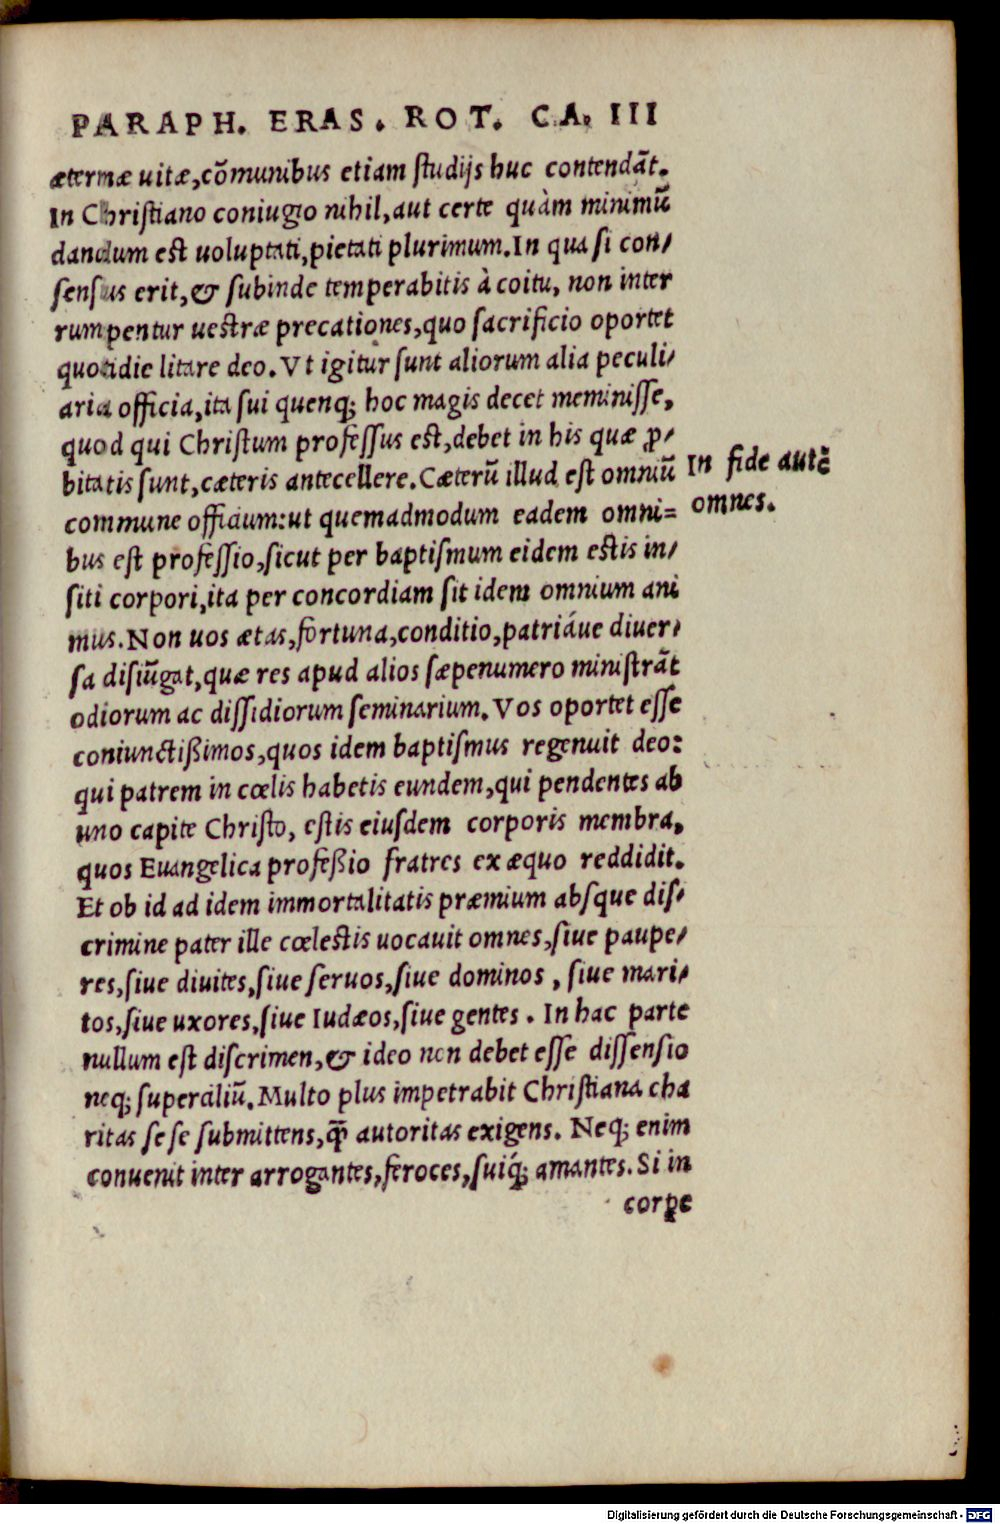 PARAPH. ERAS. ROT. CA. III
æternæ uitæ,cõmunibus etiam ſtudijs huc contendãt.
In Chriſtiano coniugio nihil,aut certe quàm minimũ
dandum eſt uoluptati,pietati plurimum.In qua ſi con-
ſenſus erit,& ſubinde temperabitis à coitu, non inter
rumpentur ueſtræ precationes,quo ſacrificio oportet
quotidie litare deo.Vt igitur ſunt aliorum alia peculi-
aria officia,ita ſui quenq; hoc magis decet meminiſſe,
quod qui Chriſtum profeſſus eſt,debet in his quæ ꝓ-
bitatis ſunt,cæteris antecellere.Cæterũ illud eſt omniũ
In fide autē
commune officium:ut quemadmodum eadem omni=
omnes.
bus eſt profeſſio,ſicut per baptiſmum eidem eſtis in-
ſiti corpori,ita per concordiam ſit idem omnium ani
mus.Non uos ætas,fortuna,conditio,patriáue diuer-
ſa diſiũgat,quæ res apud alios ſæpenumero miniſtrãt
odiorum ac diſſidiorum ſeminarium.Vos oportet eſſe
coniunctißimos,quos idem baptiſmus regenuit deo:
qui patrem in cœlis habetis eundem,qui pendentes ab
uno capite Chriſto, eſtis eiuſdem corporis membra,
quos Euangelica profeßio fratres ex æquo reddidit.
Et ob id ad idem immortalitatis præmium abſque diſ-
crimine pater ille cœleſtis uocauit omnes,ſiue paupe-
res,ſiue diuites,ſiue ſeruos,ſiue dominos , ſiue mari-
tos,ſiue uxores,ſiue Iudæos,ſiue gentes . In hac parte
nullum eſt diſcrimen,& ideo non debet eſſe diſſenſio
neq; ſuperciliũ.Multo plus impetrabit Chriſtiana cha
ritas ſe ſe ſubmittens,q̃ autoritas exigens. Neq; enim
conuenit inter arrogantes,feroces,ſuiq́; amantes.Si in
corpe
Digitalisierung gefördert durch die Deutsche Forschungsgemeinschaft - DFG